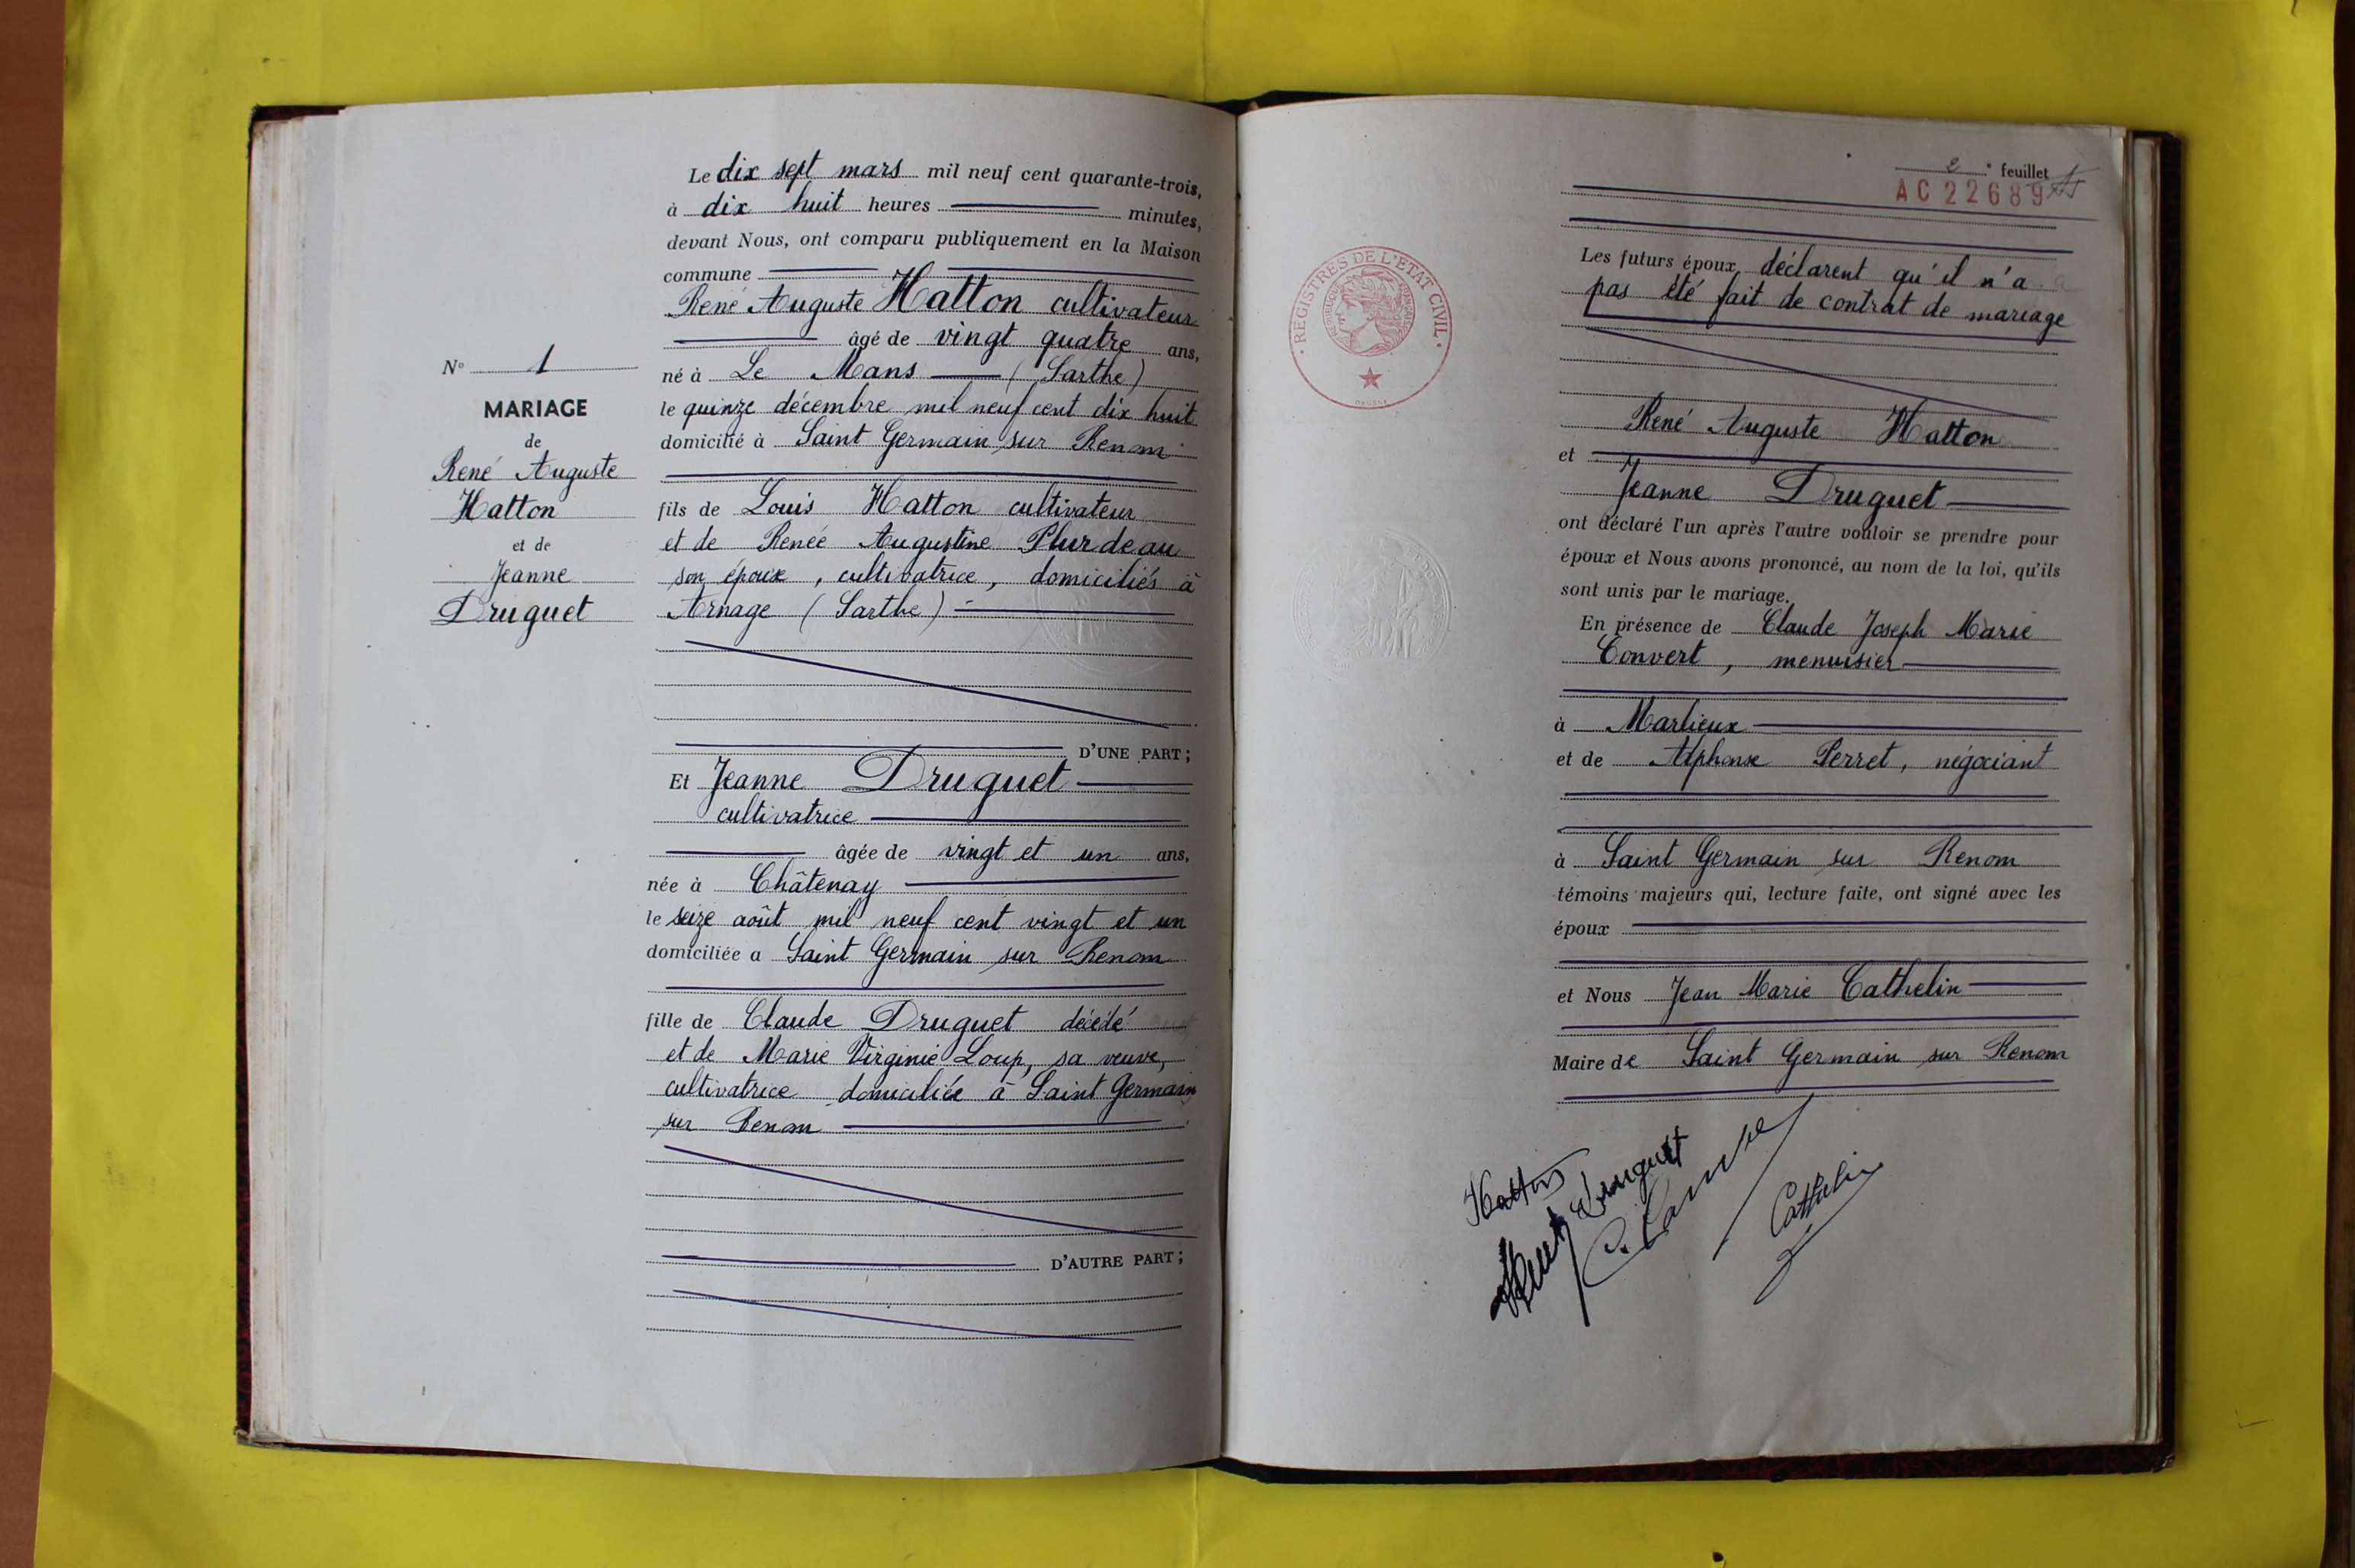 Le dix sept mars mil neuf cent quarante-trois,
à dix huit heures minutes,
devant Nous, ont comparu publiquement en la Maison
commune
René Auguste Hatton cultivateur
âgé de vingt quatre ans,
né à Le Mans (Sarthe)
le quinze décembre mil neuf cent dix huit
domicilié à Saint Germain sur Renom
fils de Louis Hatton cultivateur
et de Renée Augustine Plurdeau
son épouse, cultivatrice, domiciliés à
Arnage (Sarthe)
D'UNE PART;
Et Jeanne Druguet
cultivatrice
âgée de vingt et un ans,
née à Châtenay
le seize août mil neuf cent vingt et un
domiciliée a Saint Germain sur Renom
fille de Claude Druguet décédé
et de Marie Virginie Loup, sa veuve,
cultivatrice domiciliée à Saint Germain
sur Renom
D'AUTRE PART;
N° 1
MARIAGE
de
René Auguste
Hatton
et de
Jeanne
Druguet
2 e feuillet
AC22689
REGISTRES DE L'ETAT CIVIL
REPUBLIQUE FRANÇAISE
Les futurs époux déclarent qu'il n'a
pas été fait de contrat de mariage
René Auguste Hatton
et
Jeanne Druguet
ont déclaré l'un après l'autre vouloir se prendre pour
époux et Nous avons prononcé, au nom de la loi, qu'ils
sont unis par le mariage.
En présence de Claude Joseph Marie
Convert, menuisier
à Marlieux
et de Alphonse Perret, négociant
à Saint Germain sur Renom
témoins majeurs qui, lecture faite, ont signé avec les
époux
et Nous Jean Marie Cathelin
Maire de Saint Germain sur Renom
Hatton
Druguet
Cathelin